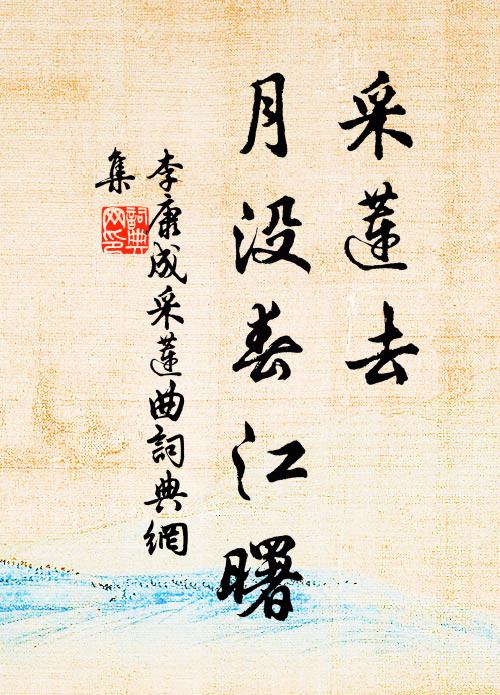 采蓮去
月没春江曙
李康成采蓮曲詞典網
集
詞典
网印